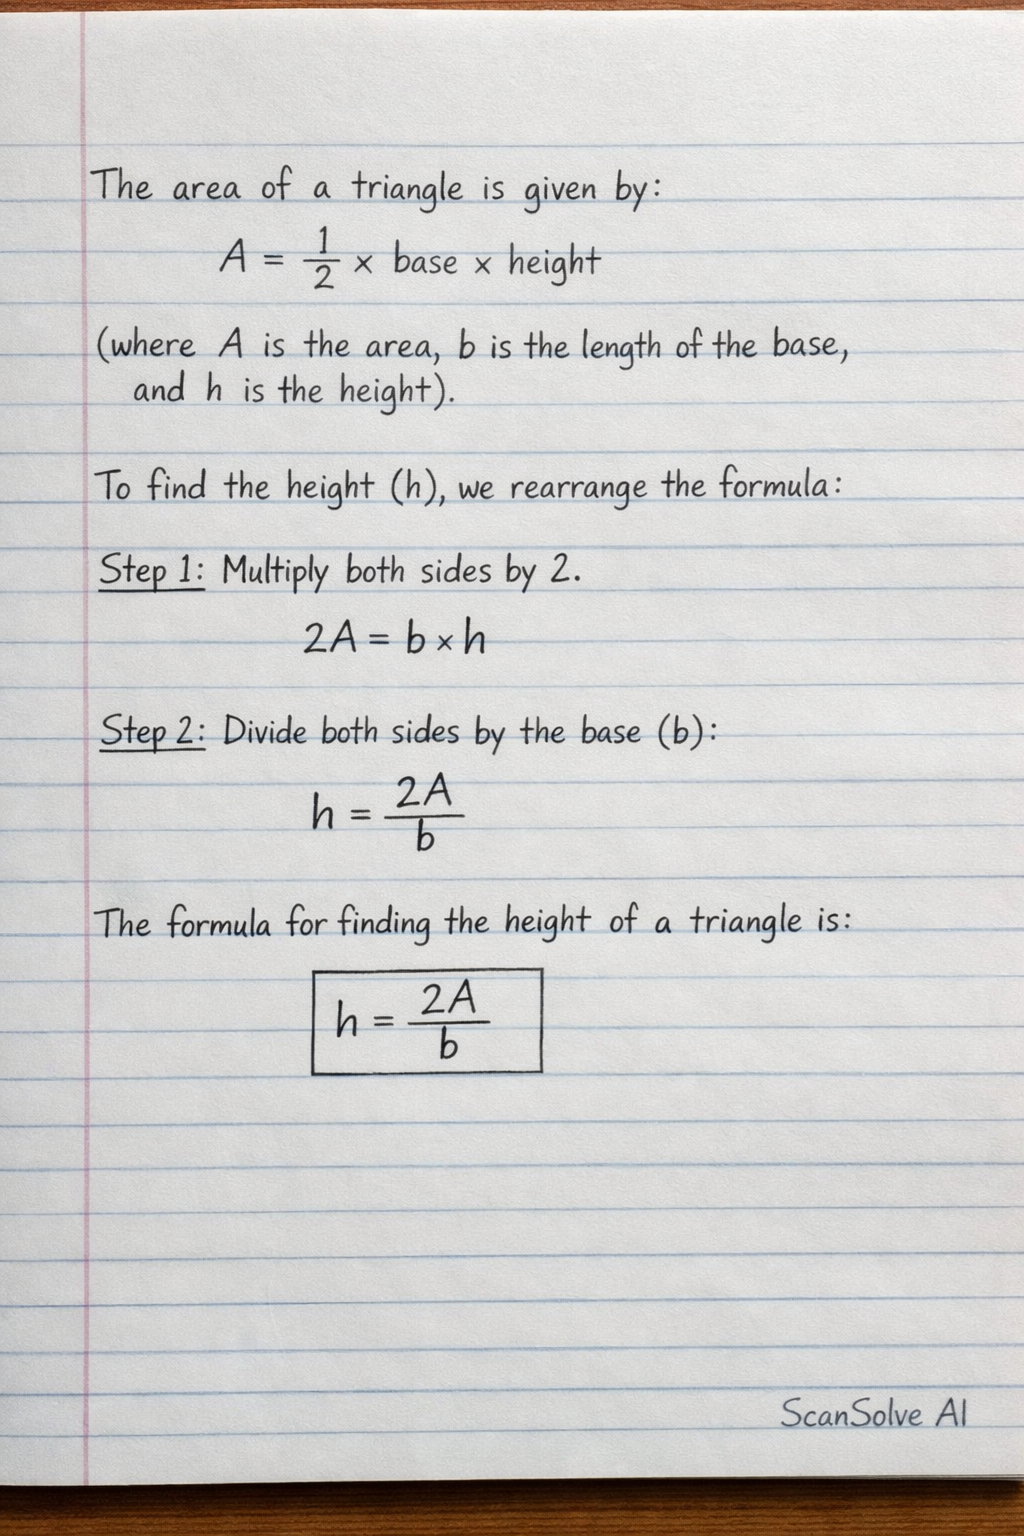 The area of a triangle is given by:
A = 1/2 × base × height
(where A is the area, b is the length of the base,
and h is the height).
To find the height (h), we rearrange the formula:
Step 1: Multiply both sides by 2.
2A = b × h
Step 2: Divide both sides by the base (b):
h = 2A/b
The formula for finding the height of a triangle is:
h = 2A/b
ScanSolve AI